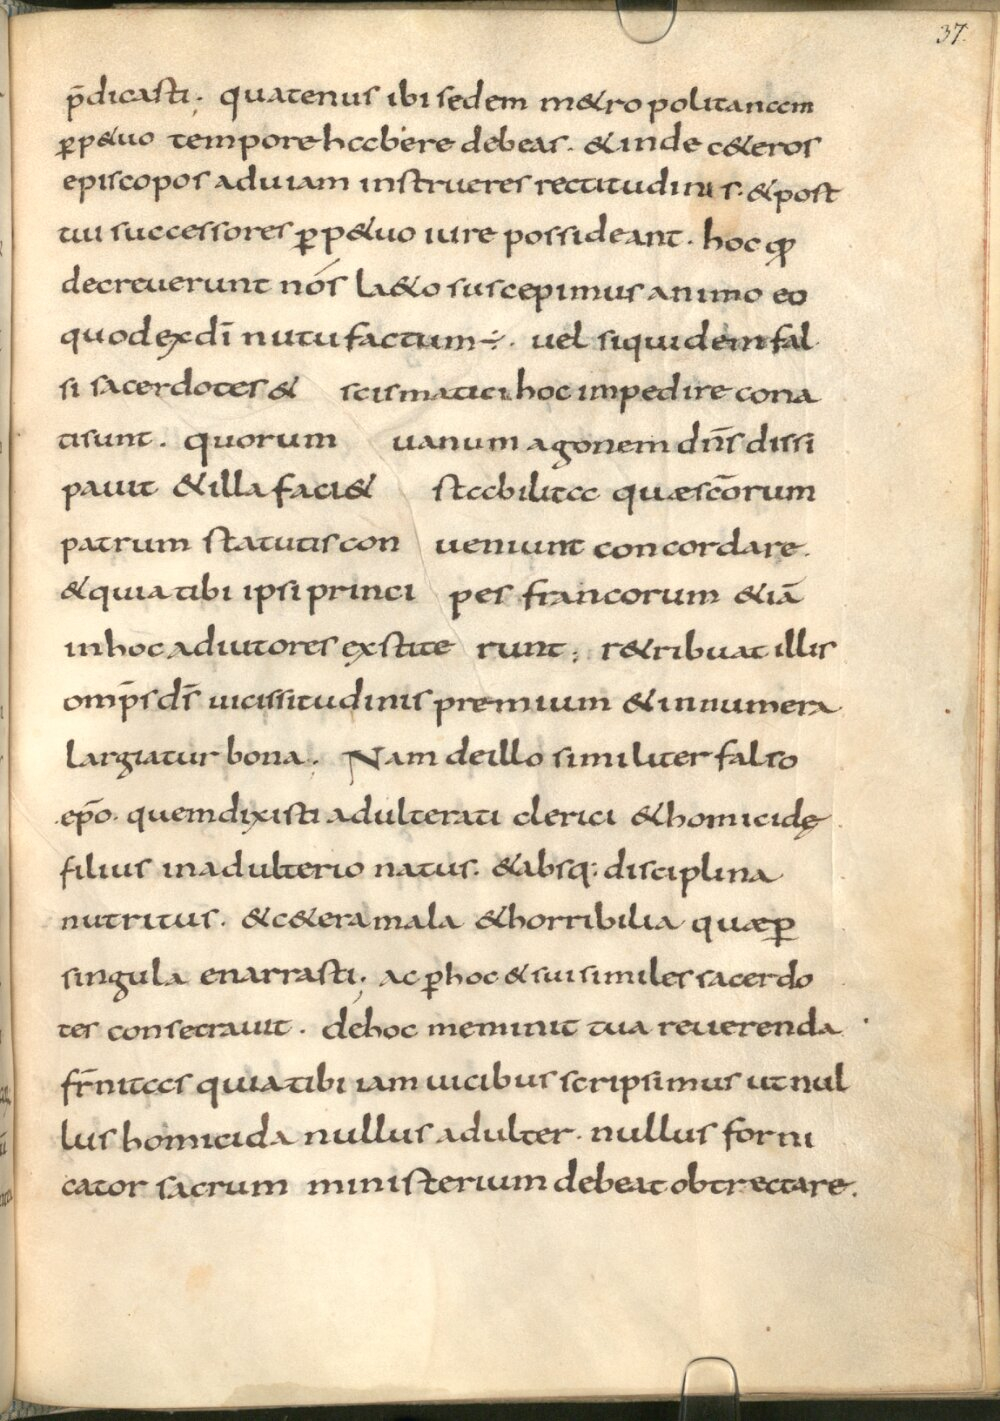 37.
p̄dicasti; quatenus ibi sedem m&ropolitanam
ꝑp&uo tempore habere debeas. &inde c&eros
episcopos aduiam instrueres rectitudinis. &post
tui successores ꝑp&uo iure possideant. hoc qđ
decreuerunt nós la&o suscepimus animo eo
quod exdī nutu factum ÷. uel siquidem fal
si sacerdotes & scismatici hoc impedire cona
tisunt. quorum uanum agonem dn̄s dissi
pauit &illa faci& stabilita quæ scōrum
patrum statutis con ueniunt concordare.
&quia tibi ipsi princi pes francorum &iā
inhoc adiutores exstite runt; r&ribuat illis
omp̄s dī uicissitudinis premium &innumera
largiatur bona; Nam deillo similiter falso
ep̄o. quem dixisti adulterati clerici &homicidę
filius inadulterio natus. &absq; disciplina
nutritus. &c&era mala &horribilia quæ ꝑ
singula enarrasti; ac ꝑhoc &sui similes sacerdo
tes consecrauit. dehoc meminit tua reuerenda
fr̄nitas quia tibi iam uicibus scripsimus ut nul
lus homicida nullus adulter. nullus forni
cator sacrum ministerium debeat obtrectare.